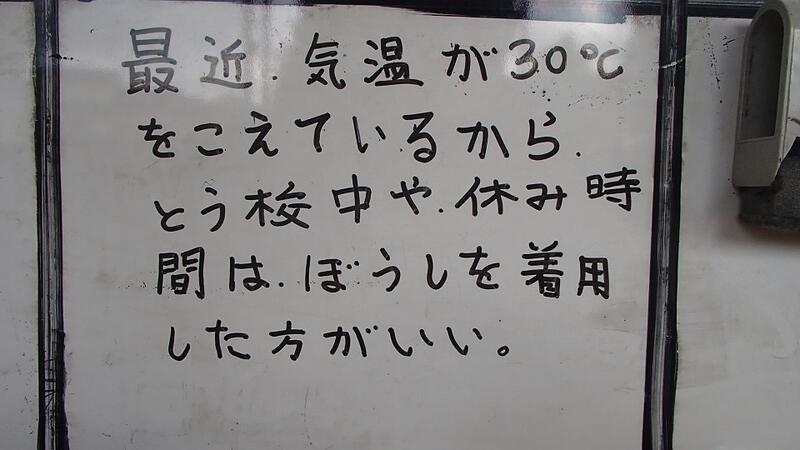 最近、気温が30℃
をこえているから、
とう校中や、休み時
間は、ぼうしを着用
した方がいい。